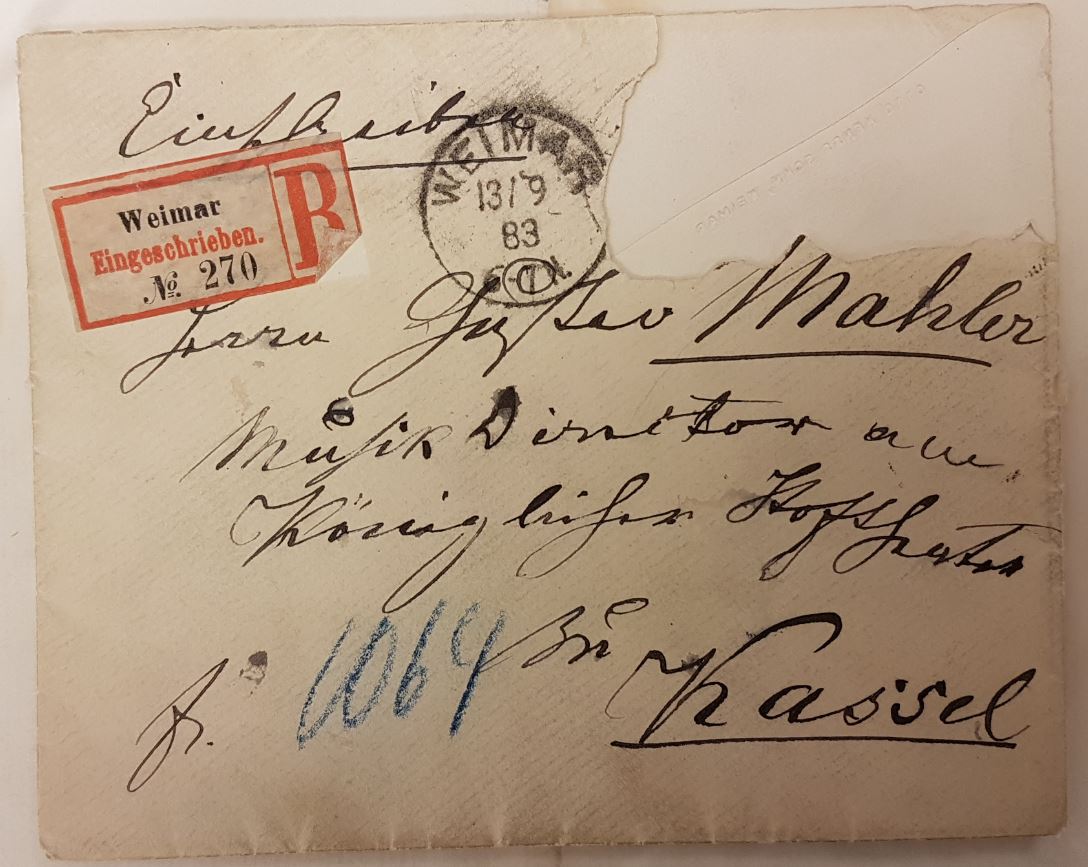 Einschreiben
WEIMAR
13/9
83
Weimar
Eingeschrieben.
R
№ 270
Herrn Gustav Mahler
Musik Director am
Königlichen Hoftheater
zu Kassel
fr.